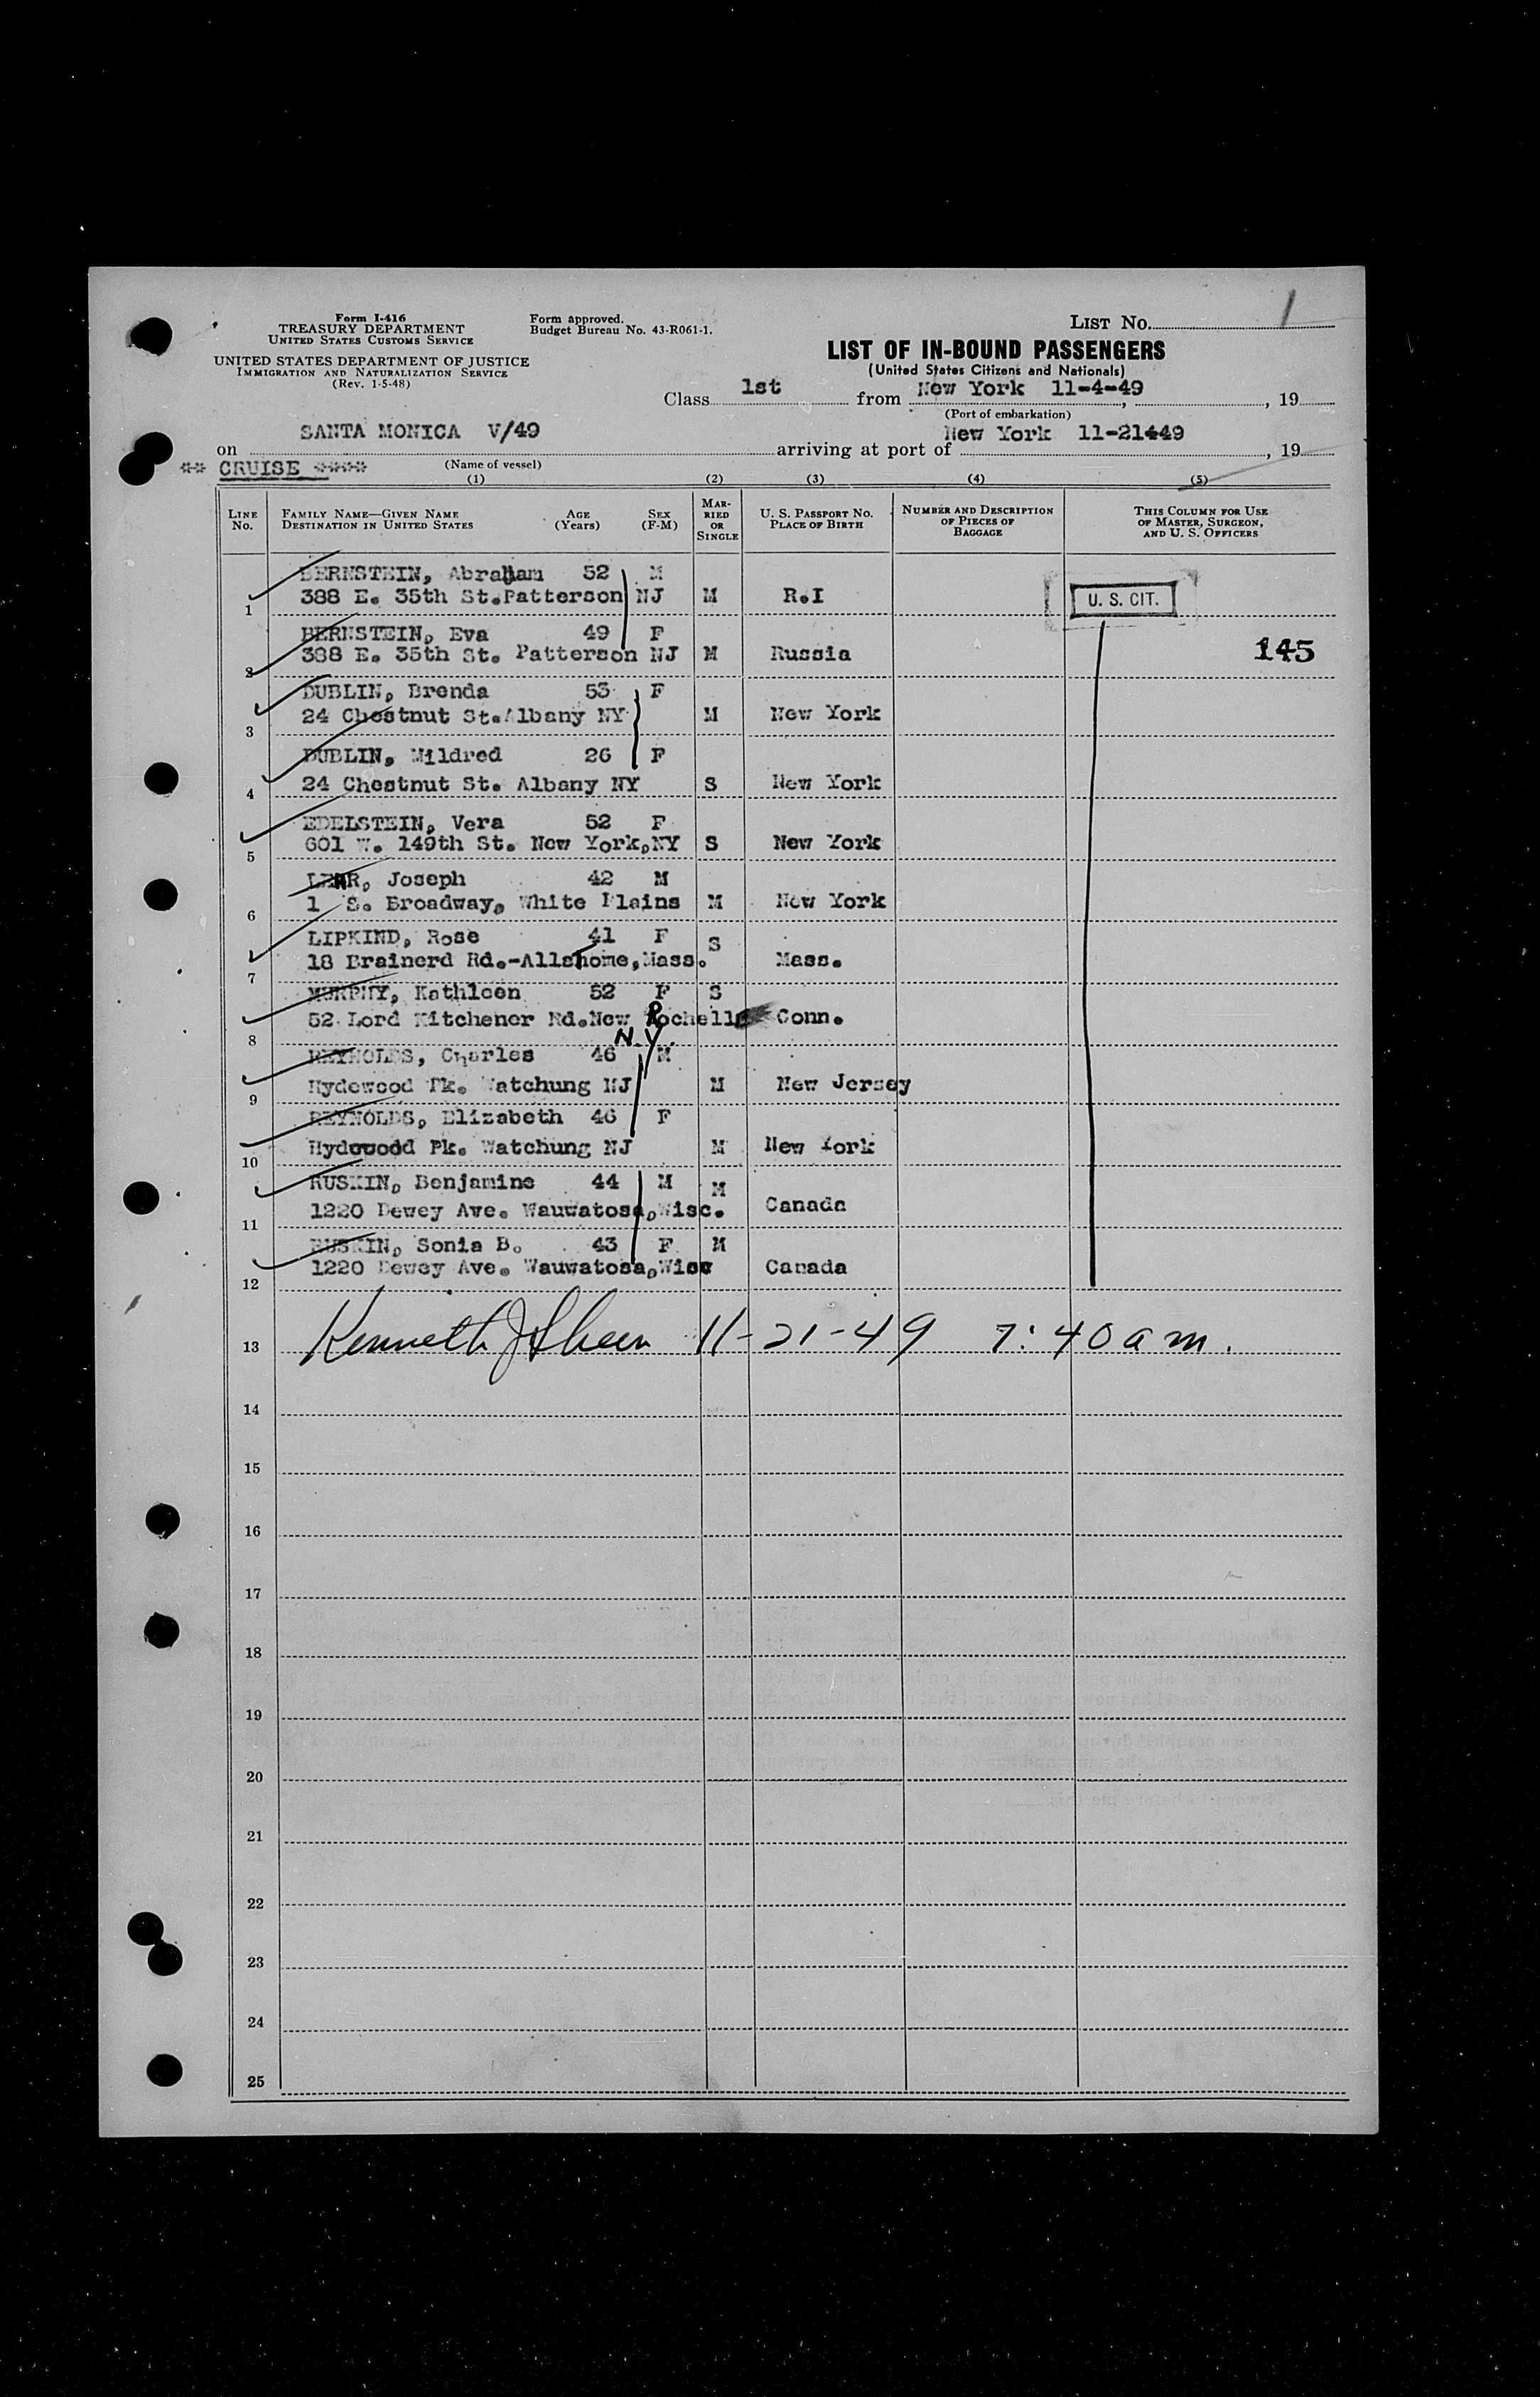 Form I-416
TREASURY DEPARTMENT
UNITED STATES CUSTOMS SERVICE
UNITED STATES DEPARTMENT OF JUSTICE
IMMIGRATION AND NATURALIZATION SERVICE
(Rev. 1-5-48)
Form approved.
Budget Bureau No. 43-R061-1.
LIST No. 1
LIST OF IN-BOUND PASSENGERS
(United States Citizens and Nationals)
Class 1st from New York 11-4-49, 19
(Port of embarkation)
on SANTA MONICA V/49 arriving at port of New York 11-21449, 19
** CRUISE ****
(Name of vessel)
(1) (2) (3) (4) (5)
LINE No. FAMILY NAME—GIVEN NAME DESTINATION IN UNITED STATES AGE (Years) SEX (F-M) MARRIED OR SINGLE U. S. PASSPORT NO. PLACE OF BIRTH NUMBER AND DESCRIPTION OF PIECES OF BAGGAGE THIS COLUMN FOR USE OF MASTER, SURGEON, AND U. S. OFFICERS
BERNSTEIN, Abraham 52 M
1 388 E. 35th St.Patterson NJ M R.I U. S. CIT.
BERNSTEIN, Eva 49 F
2 388 E. 35th St. Patterson NJ M Russia 145
DUBLIN, Brenda 53 F
3 24 Chestnut St.Albany NY M New York
DUBLIN, Mildred 26 F
4 24 Chestnut St. Albany NY S New York
EDELSTEIN, Vera 52 F
5 601 W. 149th St. New York,NY S New York
Joseph 42 M
6 1 S. Broadway, White Plains M New York
LIPKIND, Rose 41 F S
7 18 Brainerd Rd.-Mass. Mass.
MURPHY, Kathleen 52 F S
8 52 Lord Kitchener Rd.New Rochelle Conn.
N.Y.
REYNOLDS, Charles 46 M
9 Hydewood Pk. Watchung NJ M New Jersey
REYNOLDS, Elizabeth 46 F
10 Hydewood Pk. Watchung NJ M New York
RUSKIN, Benjamine 44 M M
11 1220 Dewey Ave. Wauwatosa,Wisc. Canada
RUSKIN, Sonia B. 43 F M
12 1220 Dewey Ave. Wauwatosa,Wisc Canada
13 Kenneth J 11-21-49 7:40 a m.
14
15
16
17
18
19
20
21
22
23
24
25